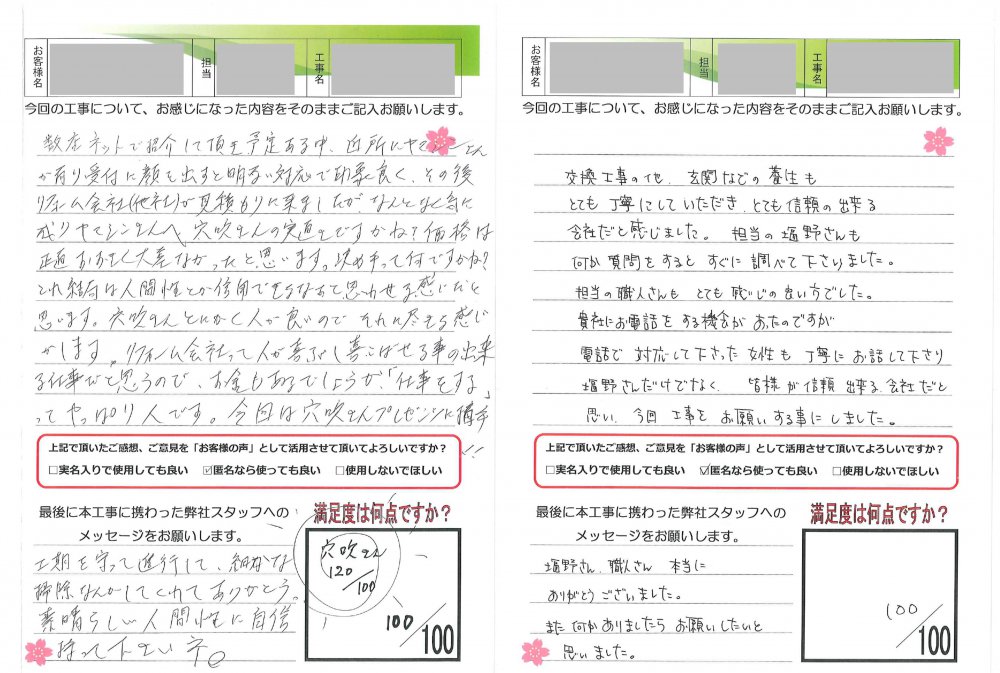 お客様名
担当
工事名
今回の工事について、お感じになった内容をそのままご記入お願いします。
数店ネットで紹介して頂き予定ある中、近所にヤマシンさん
が有り受付に顔を出すと明るい対応で印象良く、その後
リフォーム会社(他社)が見積りに来ましたがなんとなく気に
成りヤマシンさんへ 穴吹さんの実直さですかね?価格は
正直おおきく大差なかったと思います。決め手って何ですかね?
これ結局は人間性とか信用できるなあて思わせる感じだと
思います。穴吹さんとにかく人が良いので それに尽きる感じ
がします。リフォーム会社って人が喜ぶし喜こばせる事の出来
る仕事だと思うので、お金もあるでしょうが、「仕事をする」
ってやっぱり人です。今回は穴吹さんプレゼンツに拍手
!!
上記で頂いたご感想、ご意見を「お客様の声」として活用させて頂いてよろしいですか?
□実名入りで使用しても良い ☑匿名なら使っても良い □使用しないでほしい
最後に本工事に携わった弊社スタッフへの
メッセージをお願いします。
工期を守って進行して、細かな
掃除なんかしてくれてありがとう。
素晴らしい人間性に自信
持って下さいネ。
満足度は何点ですか?
穴吹さん
120/100
100/100
お客様名
担当
工事名
今回の工事について、お感じになった内容をそのままご記入お願いします。
交換工事の他、玄関などの養生も
とても丁寧にしていただき、とても信頼の出来る
会社だと感じました。担当の塩野さんも
何か質問をするとすぐに調べて下さいました。
担当の職人さんも とても感じの良い方でした。
貴社にお電話をする機会があったのですが
電話で対応して下さった女性も丁寧にお話して下さり
塩野さんだけでなく、皆様が信頼出来る会社だと
思い、今回工事をお願いする事にしました。
上記で頂いたご感想、ご意見を「お客様の声」として活用させて頂いてよろしいですか?
□実名入りで使用しても良い ☑匿名なら使っても良い □使用しないでほしい
最後に本工事に携わった弊社スタッフへの
メッセージをお願いします。
塩野さん、職人さん 本当に
ありがとうございました。
また何かありましたらお願いしたいと
思いました。
満足度は何点ですか?
100/100